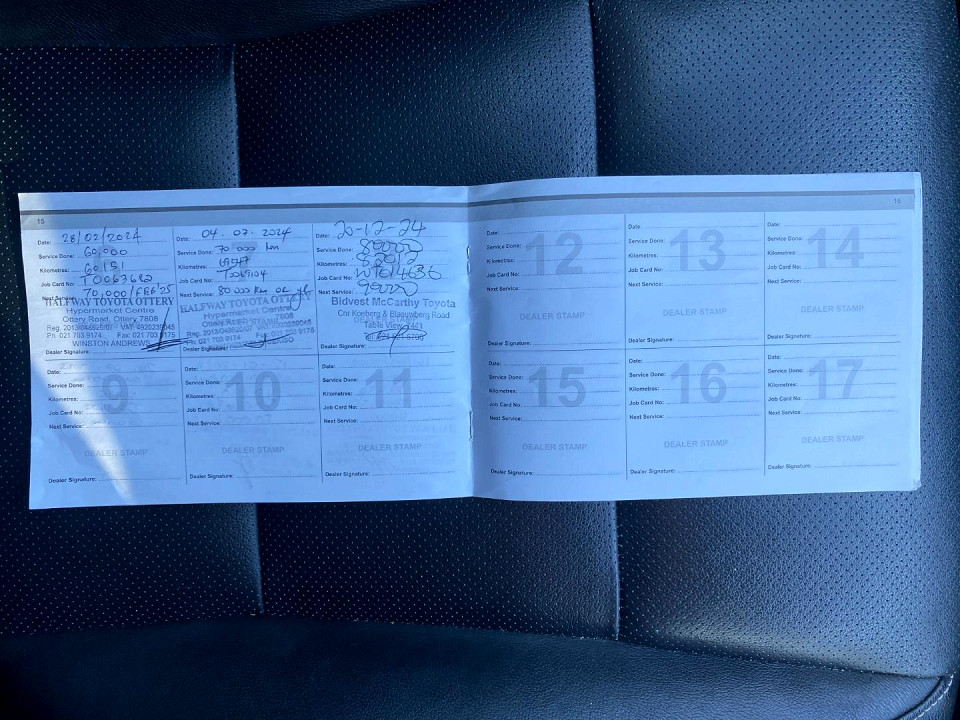 15
Date: 28/02/2024
Service Done: 60,000
Kilometres: 60151
Job Card No: T0063682
Next Service: 70,000/FEB'25
HALFWAY TOYOTA OTTERY
Hypermarket Centre
Ottery Road, Ottery 7808
Ph: 021 703 9174 Fax: 021 703 9175
WINSTON ANDREWS
Dealer Signature:
Date: 04.07.2024
Service Done: 70 000 km
Kilometres:
Job Card No:
Next Service: 80 000 km or
HALFWAY TOYOTA OTTERY
Hypermarket Centre
Ottery Road, Ottery 7808
Ph: 021 703 9174 Fax: 021 703 9175
Dealer Signature:
Date: 20-12-24
Service Done:
Kilometres:
Job Card No:
Next Service: 90000
Bidvest McCarthy Toyota
Cnr Koeberg & Blaauwberg Road
Table View 7441
Dealer Signature:
9
Date:
Service Done:
Kilometres:
Job Card No:
Next Service:
DEALER STAMP
Dealer Signature:
10
Date:
Service Done:
Kilometres:
Job Card No:
Next Service:
DEALER STAMP
Dealer Signature:
11
Date:
Service Done:
Kilometres:
Job Card No:
Next Service:
DEALER STAMP
Dealer Signature:
16
12
Date:
Service Done:
Kilometres:
Job Card No:
Next Service:
DEALER STAMP
Dealer Signature:
13
Date:
Service Done:
Kilometres:
Job Card No:
Next Service:
DEALER STAMP
Dealer Signature:
14
Date:
Service Done:
Kilometres:
Job Card No:
Next Service:
DEALER STAMP
Dealer Signature:
15
Date:
Service Done:
Kilometres:
Job Card No:
Next Service:
DEALER STAMP
Dealer Signature:
16
Date:
Service Done:
Kilometres:
Job Card No:
Next Service:
DEALER STAMP
Dealer Signature:
17
Date:
Service Done:
Kilometres:
Job Card No:
Next Service:
DEALER STAMP
Dealer Signature: